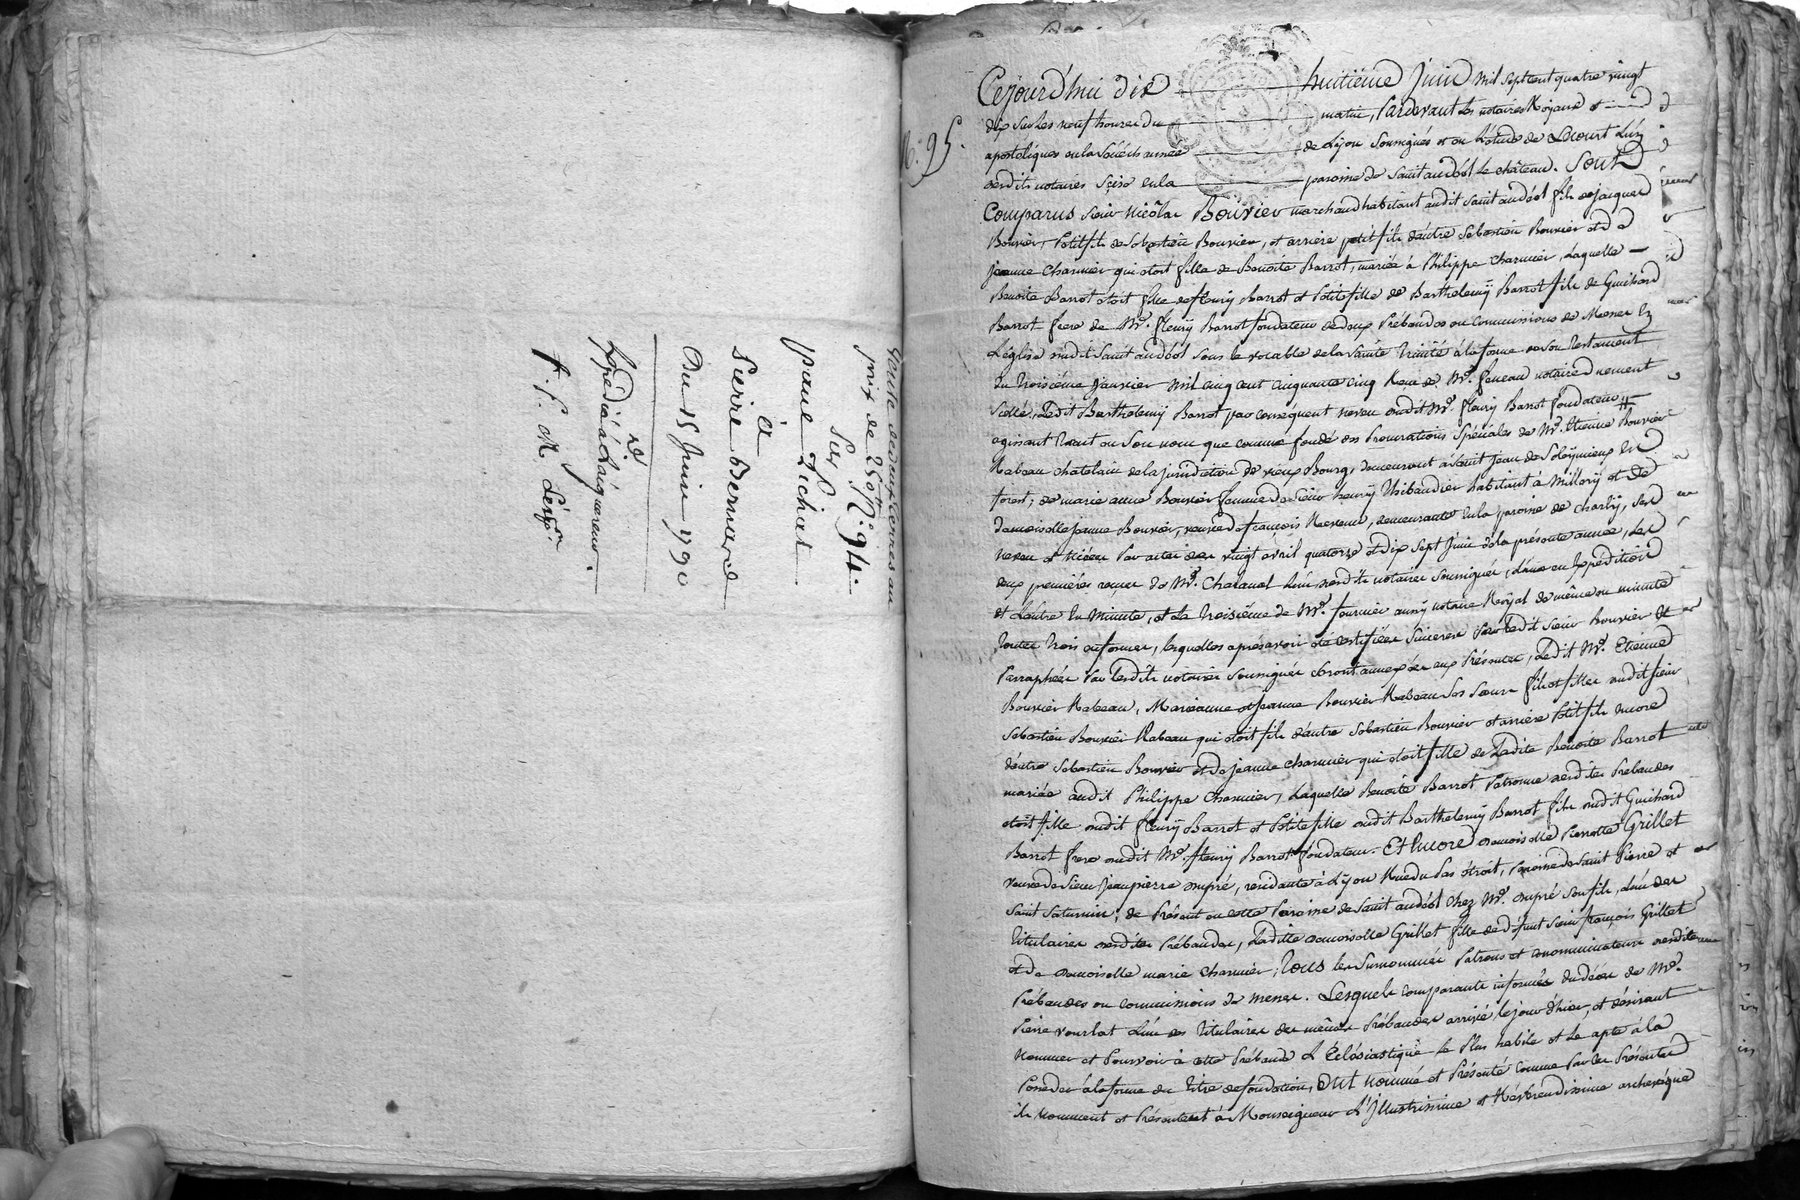 Vente de deux terres au
prix de 250 ₶ N.º 94.
Par
Pierre Bernard
Du 15 Juin 1790
Expédié à L'acquereur.
N.º 95.
Cejourd'hui dix huitième Juin mil sept cent quatre vingt
dix sur les neuf heures du matin, Pardevant les notaires Royaux et
apostoliques en la Sénéchaussée de Lyon Soussignés et en l'étude de L'un
desdits notaires Sise en la paroisse de Saint andéol le château. Sont
Comparus sieur nicolas Bouvier marchand habitant audit saint andéol fils de jacques
Bouvier, Petit fils de Sebastien Bouvier, et arrière petit fils d'autre Sebastien Bouvier et de
jeanne Charmier qui étoit fille de Benoite Barrot, mariée à Philippe Charmier, Laquelle
Benoite Barrot étoit fille de fleury Barrot et Petite fille de Barthelemy Barrot fils de Guichard
Barrot frere de Mre. fleury Barrot fondateur de deux Prébandes ou Commissions de Messes En
L'église dudit Saint andéol sous le vocable de la Sainte Trinité à la forme de son Testament
du Troisième Janvier mil cinq cent cinquante cinq Reçu de Me. notaire duement
Scellé, Ledit Barthelemy Barrot par conséquent neveu dudit Mre. fleury Barrot fondateur
agissant Tant en Son nom que comme fondé des Procurations Spéciales de Mr. Etienne Bouvier
Rabeau chatelain de la jurisdiction de vieux Bourg, demeurant à Saint Jean de Soleymieux En
forest; de marie anne Bouvier femme de Sieur henry Thibaudier habitant à Millery et de
damoiselle jeanne Bouvier, veuve de françois demeurante en la paroisse de Charly, ses
neveu et Nièces Par actes des vingt avril quatorze et dix sept Juin de la présente année, les
deux premières reçues de Me. L'un desdits notaires Soussignés, L'une en Expédition
et L'autre En Minute, et La Troisième de Me. fournier aussy notaire Royal de même en minute
Toutes Trois en forme, lesquelles après avoir été certifiées Sinceres Par Ledit Sieur Bouvier Et
Parraphées Par Lesdits notaires Soussignés seront annexées aux Présentes, Ledit Mr. Etienne
Bouvier Rabeau, Marianne et Jeanne Bouvier Rabeau Ses Sœurs fils et filles audit Sieur
Sebastien Bouvier Rabeau qui étoit fils d'autre Sebastien Bouvier et arriere Petit fils Encore
d'autre Sebastien Bouvier et de jeanne charmier qui étoit fille de Ladite Benoite Barrot
mariée audit Philippe Charmier, Laquelle Benoite Barrot Patronne desdites Prebandes
étoit fille dudit fleury Barrot et Petite fille dudit Barthelemy Barrot fils dudit Guichard
Barrot frere dudit Mre. fleury Barrot fondateur. Et Encore damoiselle Pierrette Grillet
veuve de Sieur Jean pierre dupré, residante à Lyon Rue du Pas étroit, Paroisse de Saint Pierre et
Saint Saturnin, de Présent en cette Paroisse de Saint andéol chez Mre. dupré son fils, L'un des
Titulaires desdites Prébandes, Ladite damoiselle Grillet fille de défunt Sieur françois Grillet
et de damoiselle marie charmier; Tous les Surnommés Patrons et denominateurs desdites
Prébandes ou commissions de messes. Lesquels comparants informés du décès de Mre.
Pierre vourlat L'un des Titulaires des mêmes Prébandes arrivé le jour d'hier, et désirant
nommer et Pourvoir à cette Prébande L'Ecclésiastique le Plus habile et le apte à la
Posseder à la forme du Titre de fondation, Ont nommé et Présenté comme Par ces Présentes
ils Nomment et Présentent à Monseigneur L'illustrissime et Révérendissime archevêque